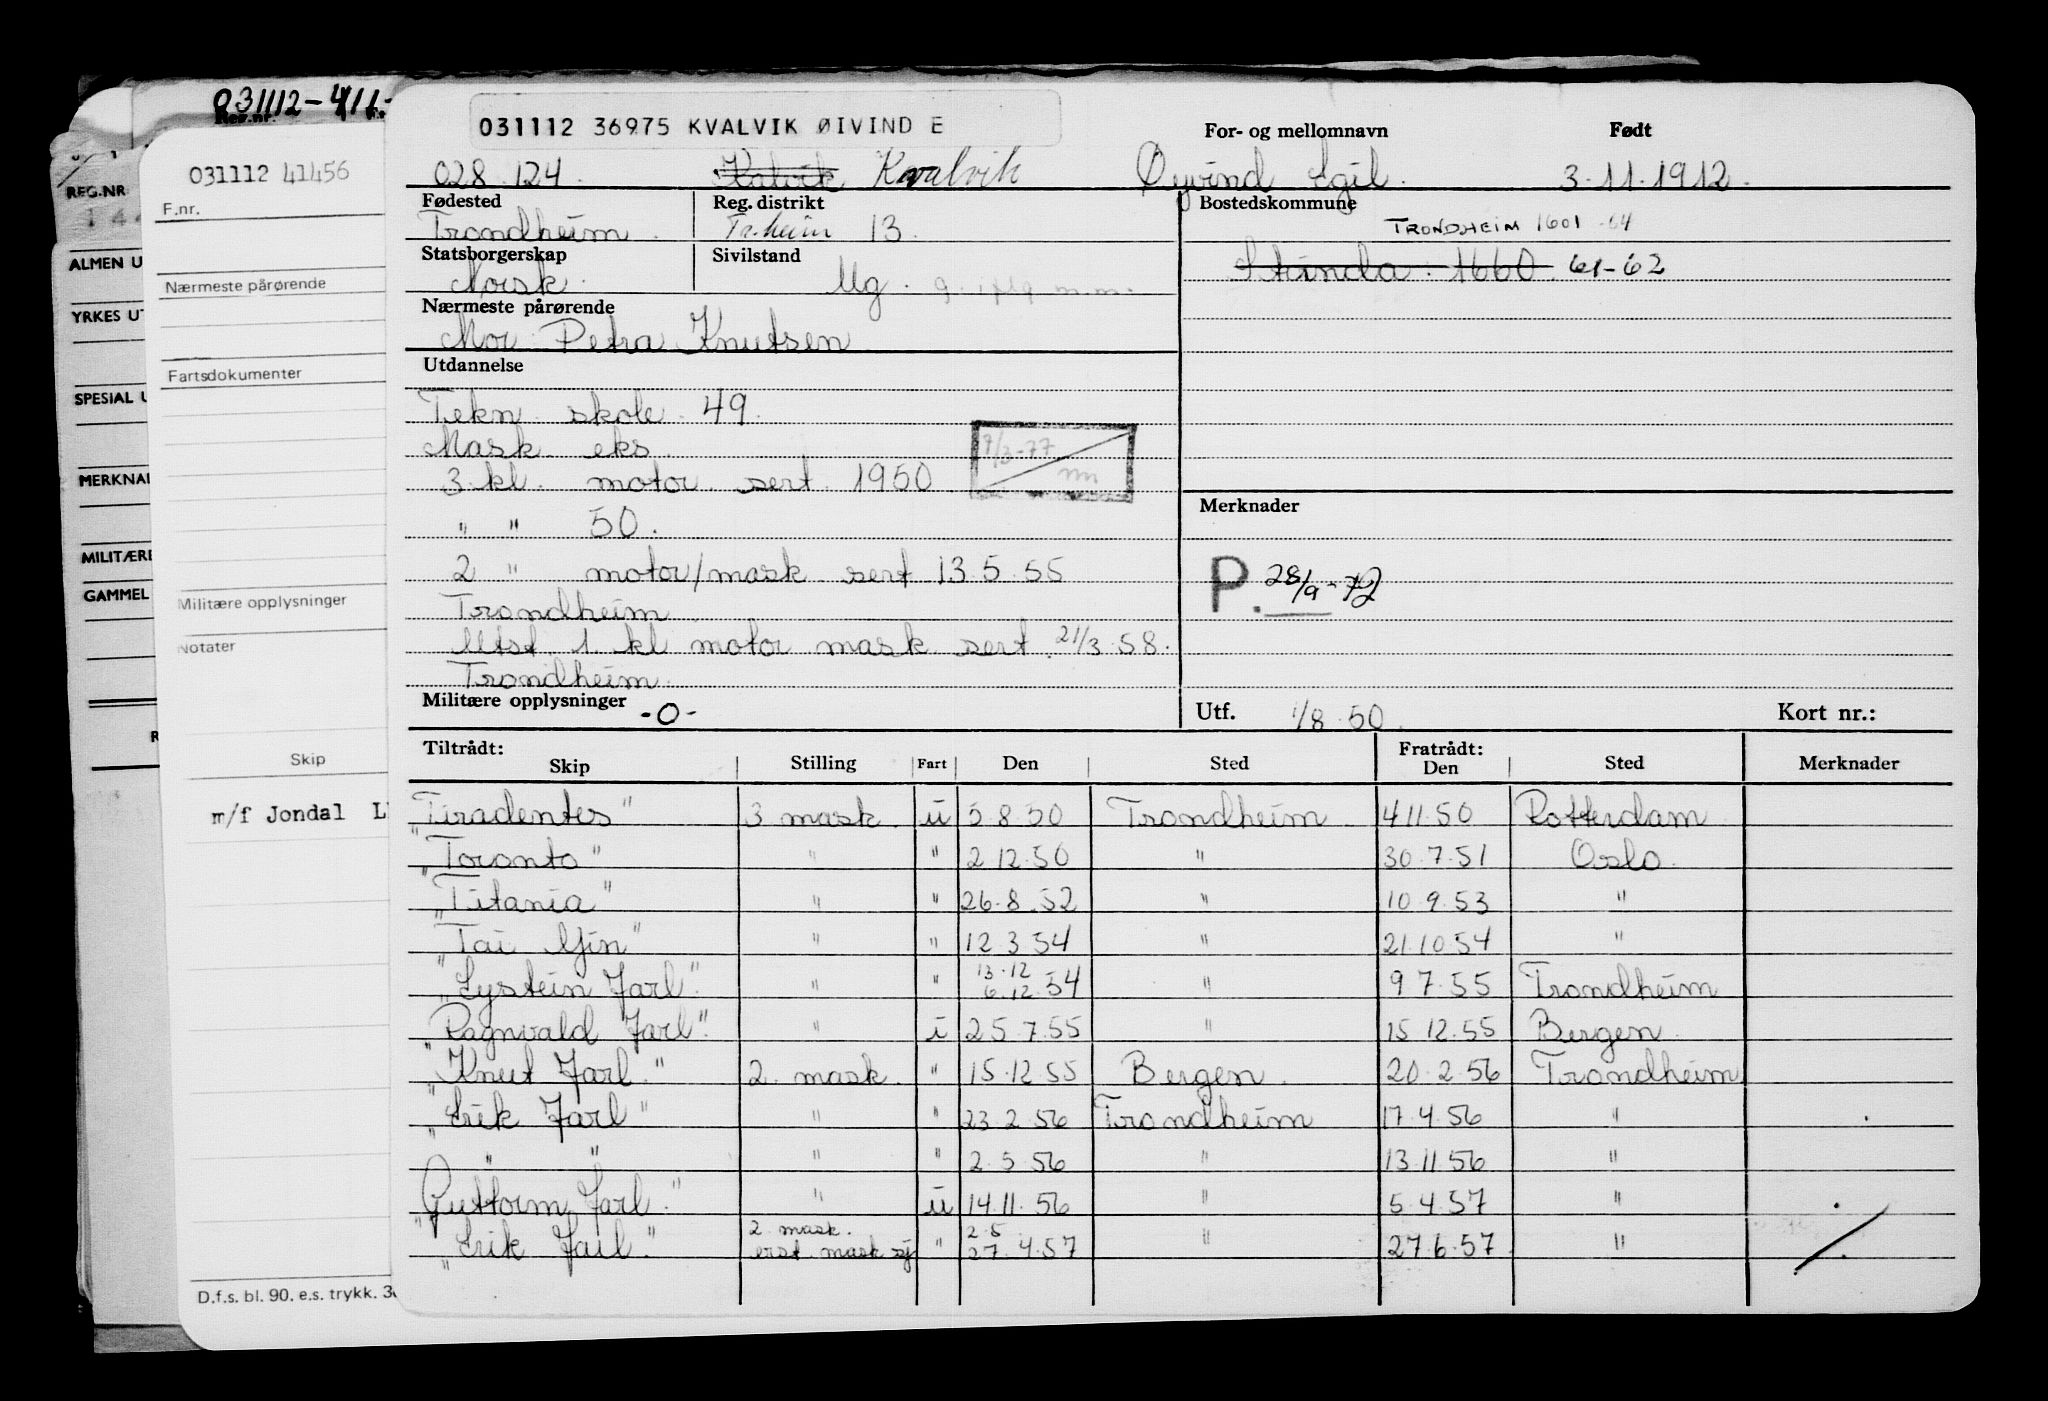 031112-411-
REG.NR
144
ALMEN U
YRKES UT
SPESIAL U
MERKNAD
MILITÆRE
GAMMEL
R
031112 41456
F.nr.
Nærmeste pårørende
Fartsdokumenter
Militære opplysninger
Notater
Skip
m/f Jondal L
D.f.s. bl. 90. e.s. trykk. 3
031112 36975 KVALVIK ØIVIND E
For- og mellomnavn Født
028.124. Kalvik Kvalvik Øyvind Egil. 3.11.1912.
Fødested Reg. distrikt Bostedskommune
Trondheim. Tr.heim 13. TRONDHEIM 1601 -64
Statsborgerskap Sivilstand
Norsk. Ug. Strinda. 1660. 61-62
Nærmeste pårørende
Mor Petra Knutsen
Utdannelse
Tekn. skole 49.
Mask eks. 7/3-77
3 kl. motor sert 1950
" " 50.
2 " motor/mask sert 13.5.55
Trondheim
Utst. 1. kl motor mask sert. 21/3.58.
Trondheim.
Merknader
P. 28/9-72
Militære opplysninger -0- Utf. 1/8.50. Kort nr.:
Tiltrådt: Fratrådt:
Skip Stilling Fart Den Sted Den Sted Merknader
Tiradentes" 3 mask. u 5.8.50 Trondheim 4.11.50 Rotterdam
"Toronto" " " 2.12.50 " 30.7.51 Oslo.
"Titania" " " 26.8.52 " 10.9.53 "
"Tai Yin" " " 12.3.54 " 21.10.54 "
"Eystein Jarl" " " 13.12 6.12.54 " 9.7.55 Trondheim
Ragnvald Jarl". " i 25.7.55 " 15.12.55 Bergen.
"Knut Jarl." 2. mask. " 15.12.55 Bergen. 20.2.56 Trondheim
"Erik Jarl" " " 23.2.56 Trondheim 17.4.56 "
" " " " 2.5.56 " 13.11.56 "
Guttorm Jarl." " u 14.11.56 " 5.4.57 "
"Erik Jarl." 2. mask. erst. mask sj " 2.5 27.4.57 " 27.6.57 "